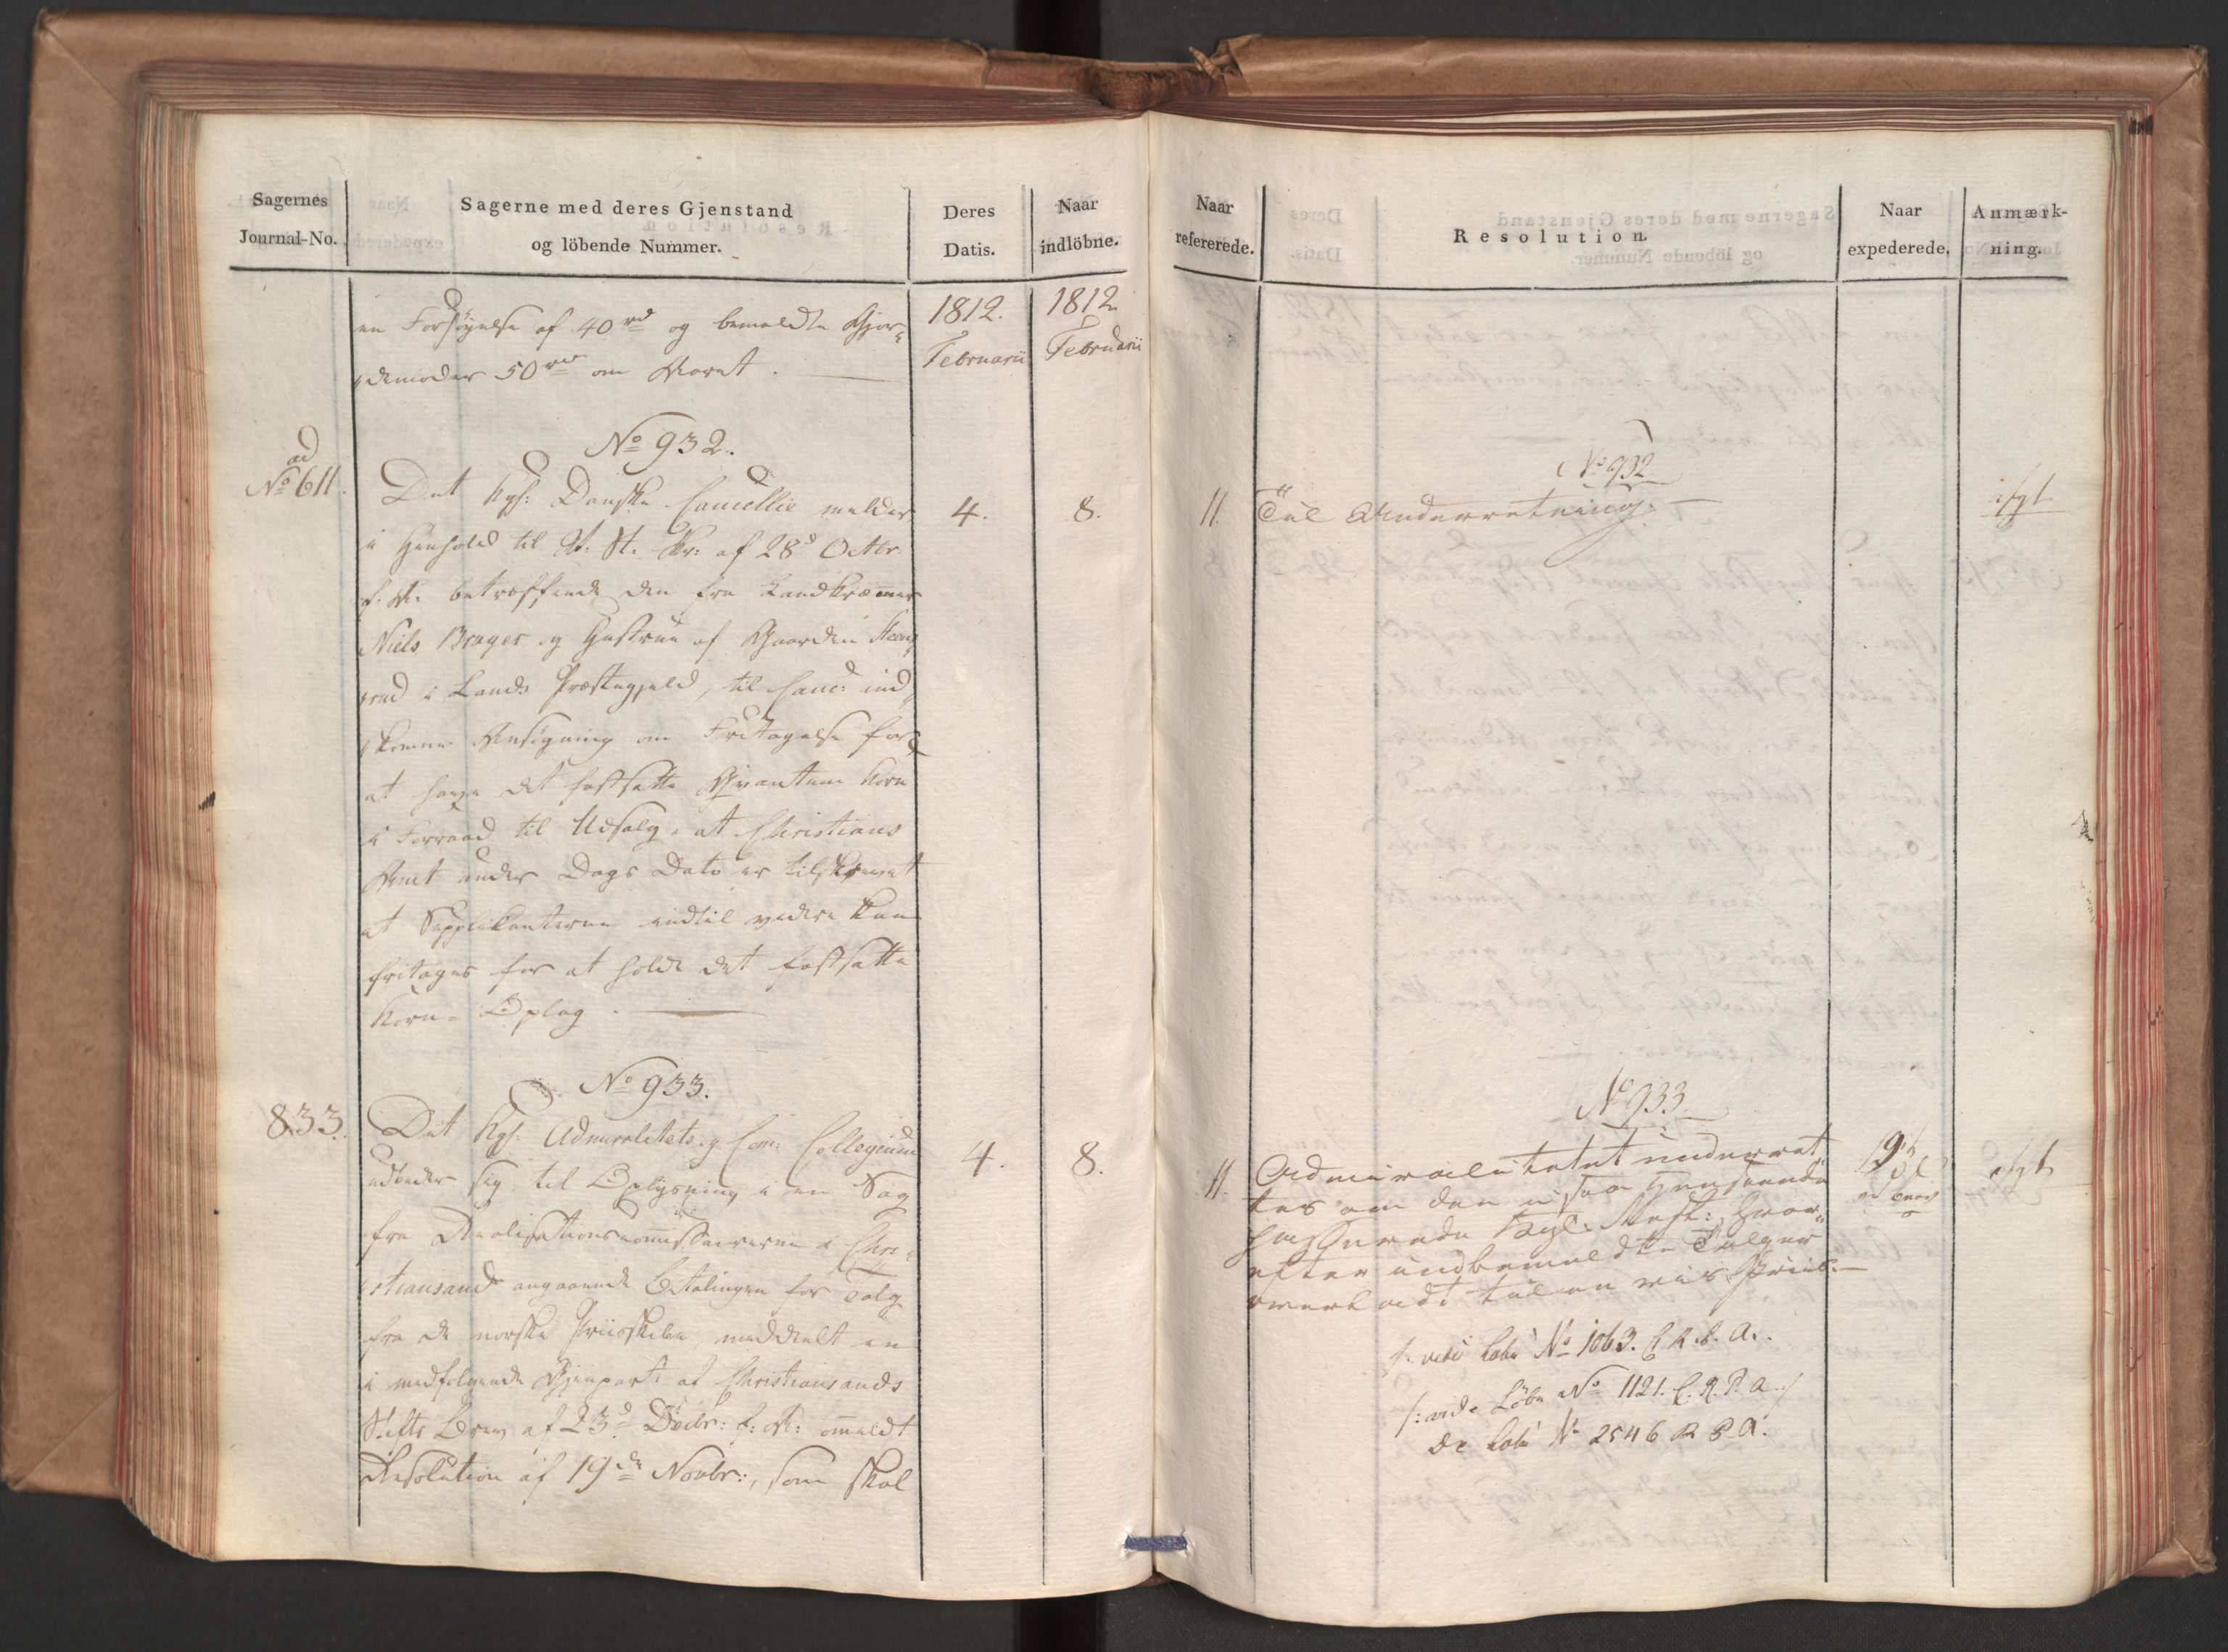 Sagernes
Journal-No.
Sagerne med deres Gjenstand
og löbende Nummer.
Deres
Datis.
Naar
indlöbne.
en Forhøyelse af 40 rd og bemeldte Gjor-
demoder 50 rd om Aaret.
1812.
Februarii
1812.
Februarii
ad
No 611.
No 932.
Det Kgl: Danske Cancellie melder
i Henhold til R: St: Br: af 28d Octbr.
f: A: betræffende den fra Landkræmmer
Niels Brager og Hustrue af Gaarden
i Lands Præstegjeld, til Canc: ind-
komne Ansøgning om Fritagelse for
at have det fastsatte Qvantum Korn
i Forraad til Udsalg, at Christians
Amt under Dags Dato er tilskrevet
at Supplikanterne indtil videre kan
fritages for at holde det fastsatte
Korn-Oplag.
4.
8.
833.
No 933.
Det Kgl: Admiralitets og Com: Collegium
udbeder sig til Oplysning i en Sag
fra Realisationscommissairerne i Chri-
stiansand angaaende Betalingen for Talg
fra de norske Priisskibe, meddeelt en
i medfølgende Gjenpart af Christiansands
Stifts Brev af 23d Decbr: f: A: ommeldt
Resolution af 19de Novbr:, som skal
4.
8.
Naar
refererede.
Resolution.
Naar
expederede.
Anmærk-
ning.
No 932.
11. Til Underretning.
No 933.
11. Admiralitetet underret-
tes om den i saa Henseende
passerede Kgl: Resl: hvor-
efter indbemeldte Talg er
overladt til en vis Priis.
/: vide Løbe No 1063. C. R. P. A.
/: vide Løbe No 1121. C. R. P. A. :/
Do Løbe No 2546 R P A.